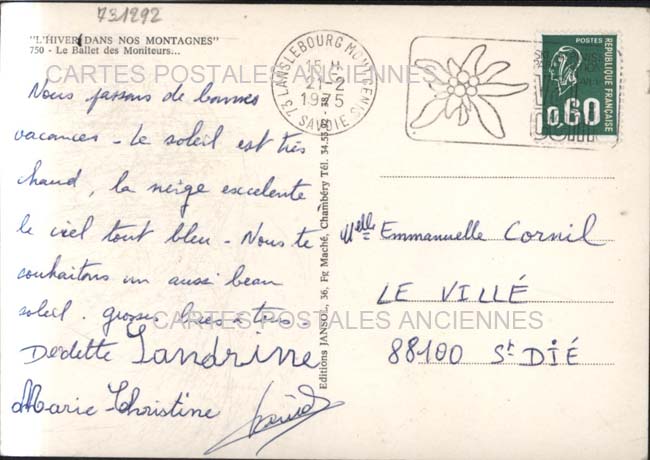 731292
"L'HIVER DANS NOS MONTAGNES"
750 - Le Ballet des Moniteurs...
CARTES POSTALES ANCIENNES
73 LANSLEBOURG MONT CENIS
15 H
21-2
1975
SAVOIE
POSTES
REPUBLIQUE FRANÇAISE
0,60
Nous passons de bonnes
vacances - Le soleil est très
chaud, la neige excelente
le ciel tout bleu - Nous te
souhaitons un aussi beau
soleil. grosses bises à tous.
CARTES POSTALES ANCIENNES
Dedette Sandrine
Marie-Christine
Editions JANSOL, 36, Fg Maché, Chambéry Tél. 34.53.
Melle Emmanuelle Cornil
LE VILLÉ
88100 St DIÉ